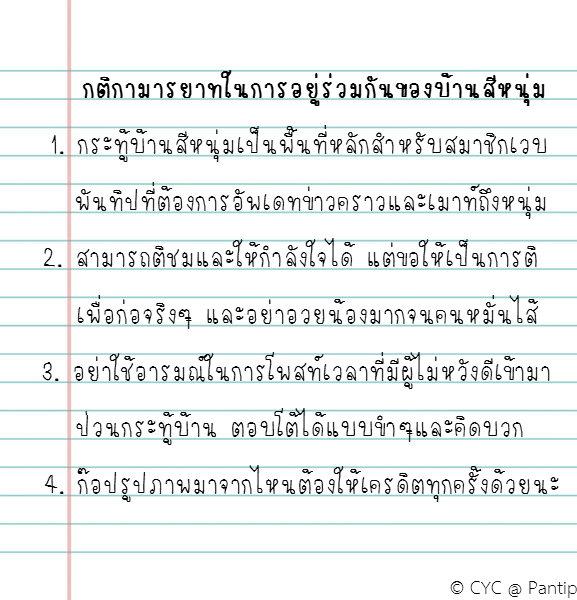 กติกามารยาทในการอยู่ร่วมกันของบ้านสีหนุ่ม
1. กระทู้บ้านสีหนุ่มเป็นพื้นที่หลักสำหรับสมาชิกเวบ
พันทิปที่ต้องการอัพเดทข่าวคราวและเมาท์ถึงหนุ่ม
2. สามารถติชมและให้กำลังใจได้ แต่ขอให้เป็นการติ
เพื่อก่อจริงๆ และอย่าอวยน้องมากจนคนหมั่นไส้
3. อย่าใช้อารมณ์ในการโพสท์เวลาที่มีผู้ไม่หวังดีเข้ามา
ป่วนกระทู้บ้าน ตอบโต้ได้แบบขำๆและคิดบวก
4. ก๊อปรูปภาพมาจากไหนต้องให้เครดิตทุกครั้งด้วยนะ
© CYC @ Pantip